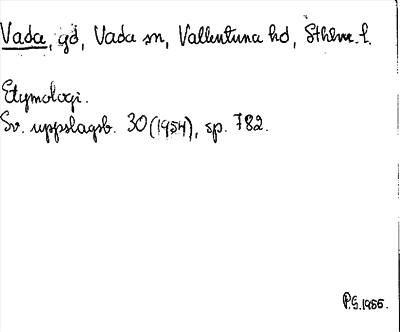 Vada, gd, Vada sn, Vallentuna hd, Sthlms l.
Etymologi.
Sv. uppslagsb. 30 (1954), sp. 782.
P.S. 1955.